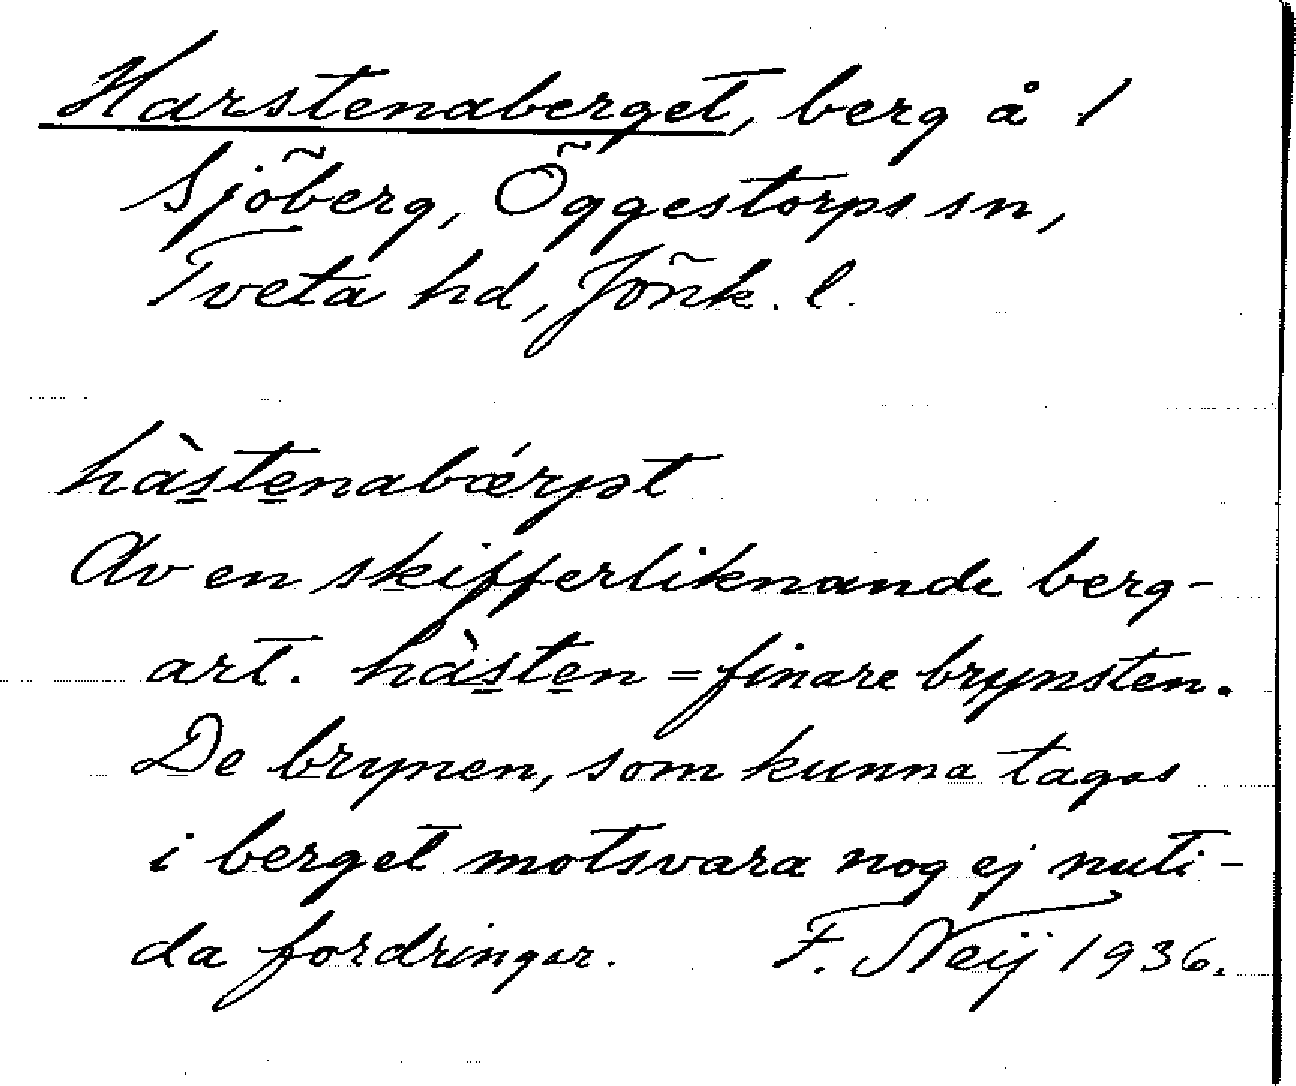 Harstenaberget, berg å 1
Sjöberg, Öggestorps sn,
Tveta hd, Jönk. l.
hàs̲te̲nabǽrjət
Av en skifferliknande berg-
art. hàs̲te̲n = finare brynsten.
De brynen, som kunna tagas
i berget motsvara nog ej nuti-
da fordringar. F. Neij 1936.